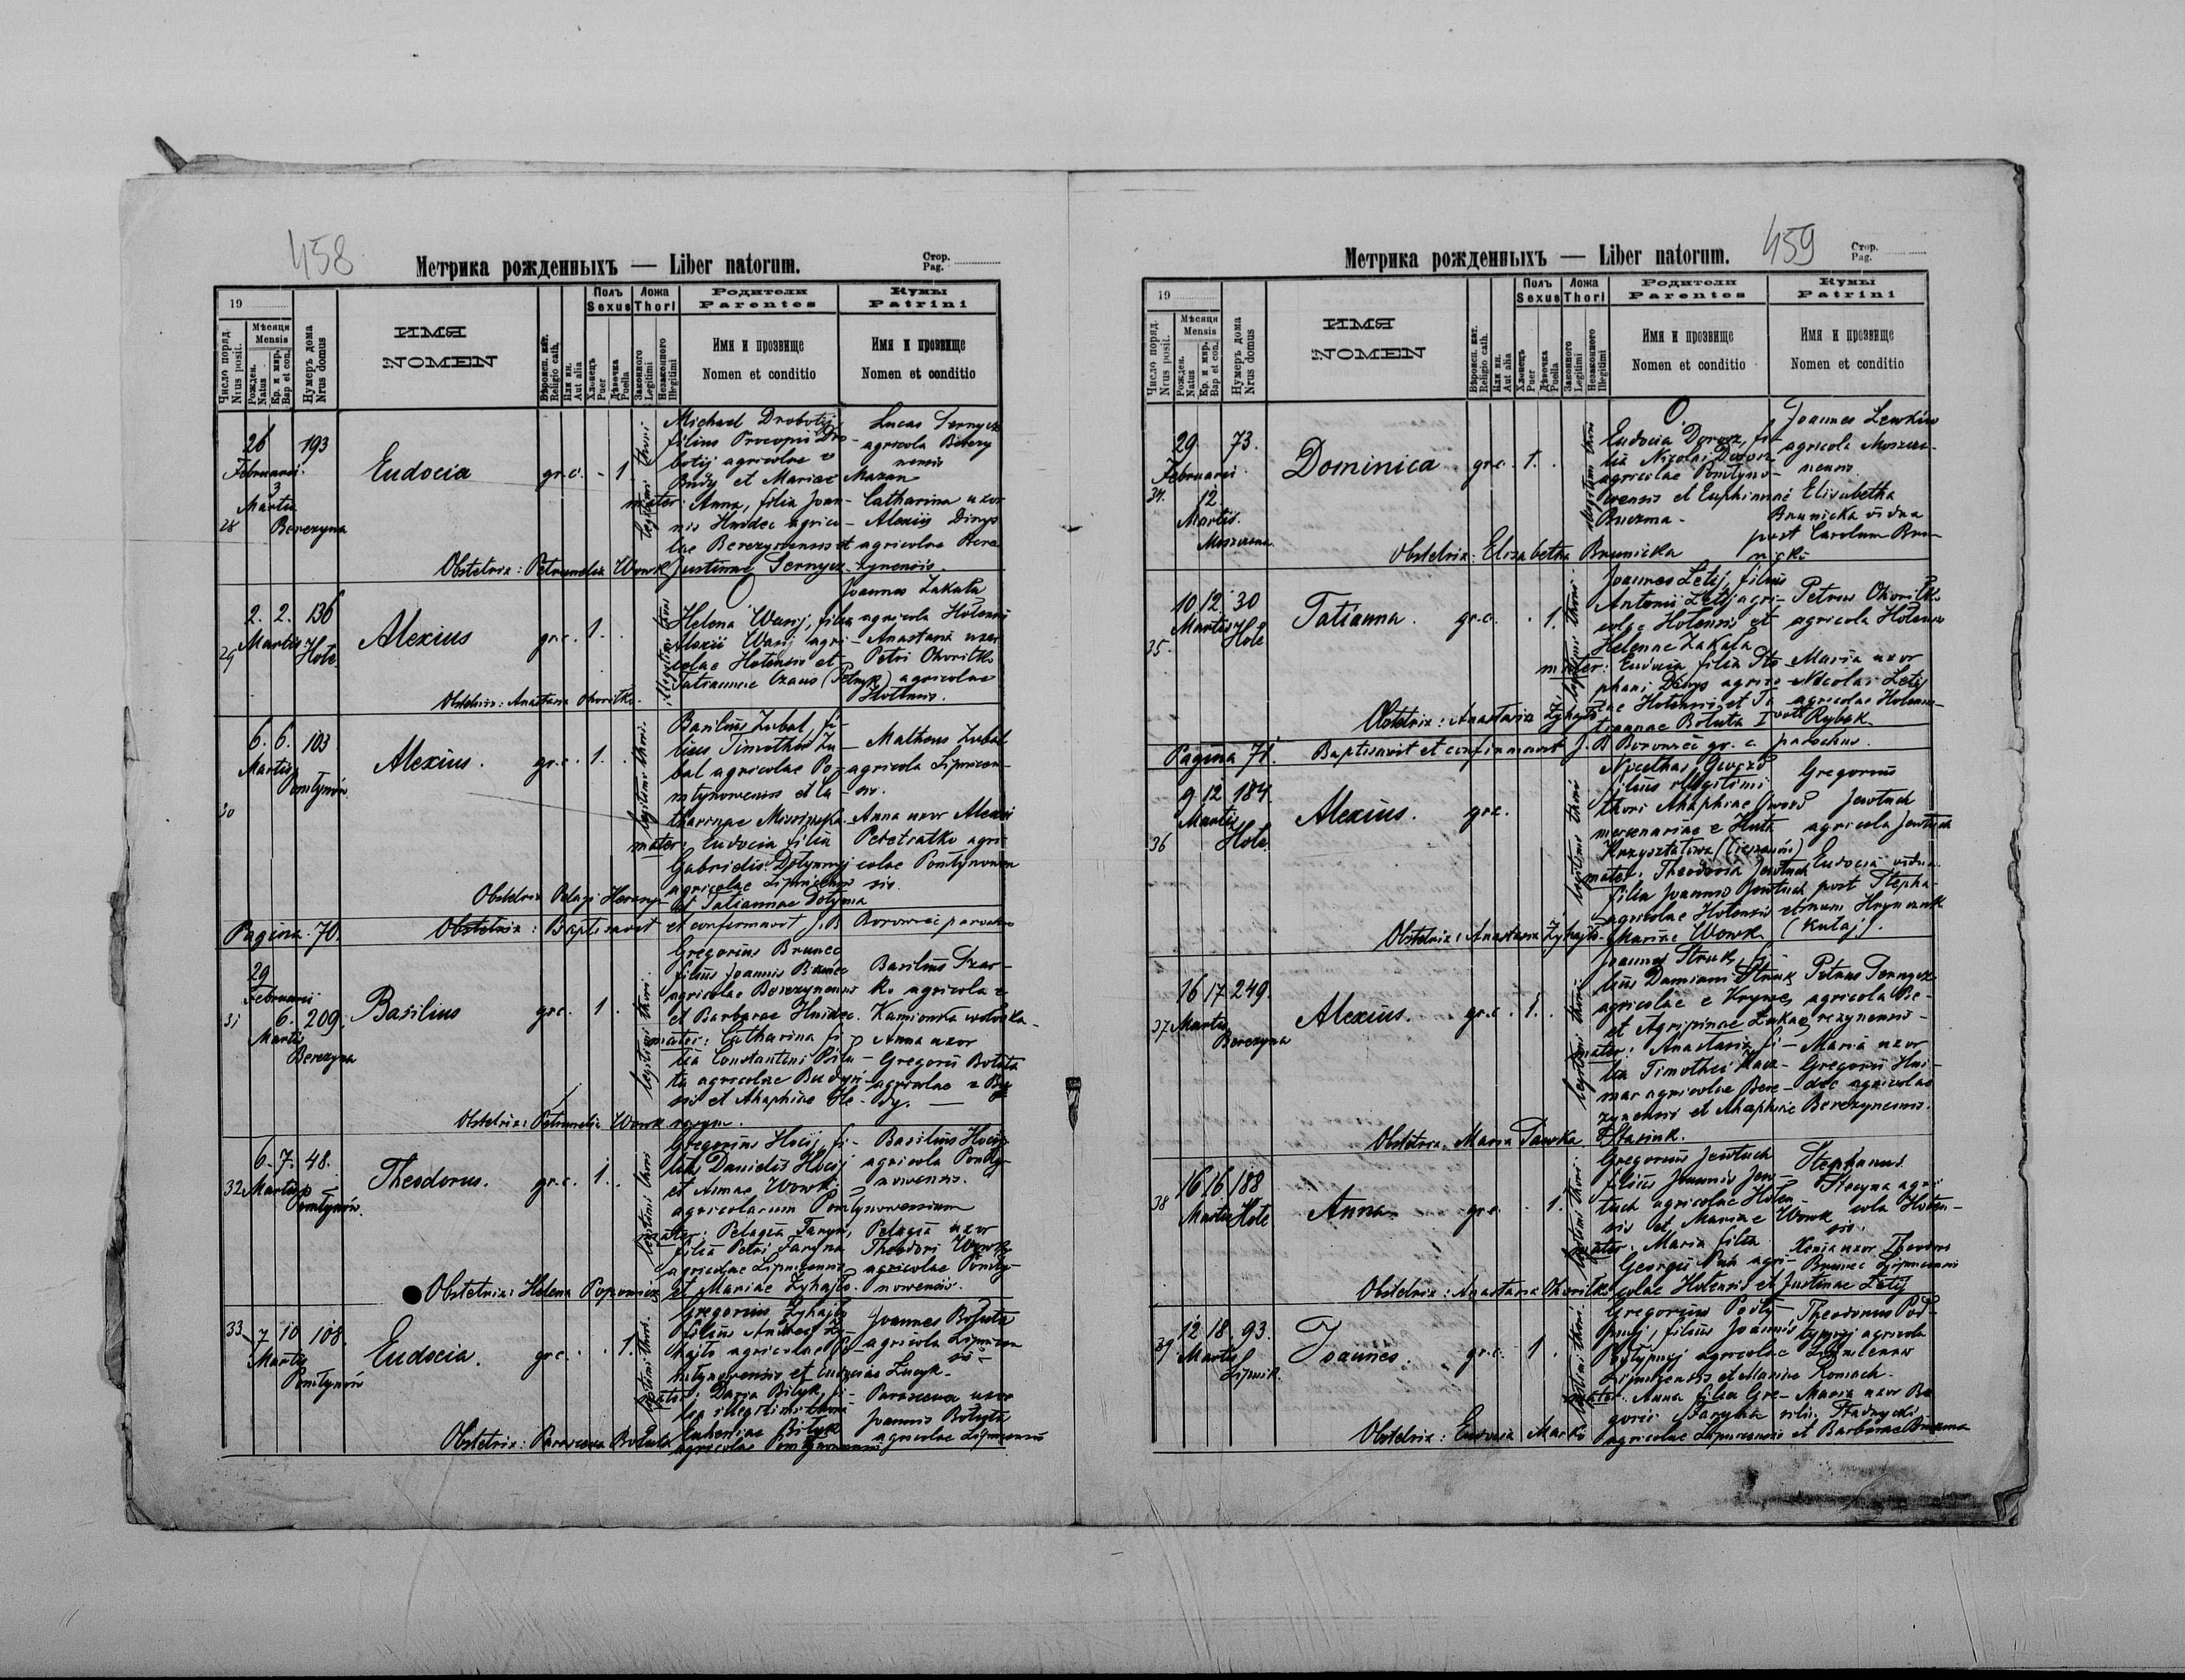 458
Метрика рожденныхъ — Liber natorum.
Стор.
Pag.
19
Число поряд.
Nrus posit.
Мѣсяця
Mensis
Рожден.
Natus
Кр. и мир.
Bap et con.
Нумеръ дома
Nrus domus
ИМЯ
NOMEN
Вѣроисп. кат.
Religio cath.
Или ин.
Aut alia
Полъ
Sexus
Хлопецъ
Puer
Дѣвочка
Puella
Ложа
Thori
Законного
Legitimi
Незаконного
Illegitimi
Родители
Parentes
Имя и прозвище
Nomen et conditio
Кумы
Patrini
Имя и прозвище
Nomen et conditio
28
26 Februarii
3 Martii
193
Berezyna
Eudocia
gr. c. - 1
legitimi thori
Michael Drobotij
filius Procopii Dro-
botij agricolae e
Budy et Mariae Mazan
mater: Anna, filia Joan-
nis Hnidec agrico-
lae Berezynensis et
Justinae Sernycz
Lucas Sernycz
agricola Berezy
nensis
Catharina uxor
Alexii Dinys
agricolae Bere
zynensis.
Obstetrix: Petrunela Wowk
29
2. 2. 136
Martii Hole
Alexius
gr. c. 1.
illegitimi thori
Helena Wasij, filia
Alexii Wasij agri-
colae Holensis et
Tatiannae Czaus (Petryk)
Joannes Zakala
agricola Holensis
Anastasia uxor
Petri Ohoritko
agricolae
Holensis.
Obstetrix: Anastasia Ohoritko.
30
6. 6. 103
Martii
Pomlynów
Alexius.
gr. c. 1.
legitimi thori.
Basilius Zubal, fi-
lius Timothei Zu-
bal agricolae Po-
mlynowensis et Ca-
tharinae
mater: Eudocia filia
Gabrielis Dotynnyj
agricolae Lipnicensis
et Tatiannae Dotyma
Matheus Zubal
agricola Lipnicen-
sis.
Anna uxor Alexii
Peretiatko agri-
colae Pomlynowen
sis.
Obstetrix Pelagi
Pagina 70.
Baptisavit et confirmavit J. B Borowec parochus
31
29
Februarii
6. 209.
Martii
Berezyna
Basilius
gr. c. 1
legitimi thori.
Gregorius Brunec
filius Joannis Brunec
agricolae Berezynensis
et Barbarae Hnidec.
mater: Catharina fi-
lia Constantini Bilu-
ta agricolae Budyn-
sis et Ahaphiae He-
Basilius Tzar-
ko agricola e
Kamionka wołoska
Anna uxor
Gregorii Boluta
agricolae e Bu
dy.
Obstetrix: Petrunela Wowk
32
6. 7. 48.
Martii
Pomlynów.
Theodorus.
gr. c. 1.
legitimi thori
Gregorius Hocij, fi-
lius Danielis Hocij
et Annae Wowk
agricolarum Pomlynowensium
mater: Pelagia Faryn,
filia Petri Faryna
agricolae Lipnicensis
et Mariae Zyhajlo.
Basilius Hocij
agricola Pomly-
nowensis.
Pelagia uxor
Theodori Wowk
agricolae Pomly-
nowensis.
Obstetrix: Helena Popowicz
33
7 10 108.
Martii
Pomlynów
Eudocia.
gr. c. 1.
legitimi thori.
Gregorius Zyhajlo
filius Andreae Zy-
hajlo agricolae Po-
mlynowensis et Eudociae Lucyk.
mater: Daria Bilyk, fi-
lia illegitimi thori
Euheniae Bilyk
agricolae Pomlynowensis
Joannes Boluta
agricola Lipnicen
sis
Parascewa uxor
Joannis Boluta
agricolae Lipnicensis
Obstetrix: Parascewa Boluta
459
Метрика рожденныхъ — Liber natorum.
Стор.
Pag.
19
Число поряд.
Nrus posit.
Мѣсяця
Mensis
Рожден.
Natus
Кр. и мир.
Bap et con.
Нумеръ дома
Nrus domus
ИМЯ
NOMEN
Вѣроисп. кат.
Religio cath.
Или ин.
Aut alia
Полъ
Sexus
Хлопецъ
Puer
Дѣвочка
Puella
Ложа
Thori
Законного
Legitimi
Незаконного
Illegitimi
Родители
Parentes
Имя и прозвище
Nomen et conditio
Кумы
Patrini
Имя и прозвище
Nomen et conditio
34.
29 73.
Februarii
12
Martii.
Moszczana
Dominica
gr. c. 1.
illegitimi thori
Eudocia Dorosz, fi-
lia Nicolai Dorosz
agricolae Pomlyno-
wensis et Euphimiae
Buczma.
Joannes Lewkiw
agricola Moszcza-
nensis.
Elisabetha
Brunicka vidua
post Carolum Bru-
nicki
Obstetrix: Elizabetha Brunicka
35.
10 12. 30
Martii Hole
Tatianna.
gr. c. 1.
legitimi thori.
Joannes Letij, filius
Antonii Letij agri-
colae Holensis et
Helenae Zakala
mater: Eudocia filia Ste-
phani Dinys agrico-
lae Holensis et Ta-
tiannae Boluta I voti Rybak
Petrus Ohoritko
agricola Holensis
Maria uxor
Nicolai Letij
agricolae Holensis
Obstetrix: Anastasia Zyhajlo
Pagina 71. Baptisavit et confirmavit J. B Borowec gr. c. parochus.
36
9 12 184.
Martii
Hole.
Alexius.
gr. c.
legitimi thori
Nicethas Gwozd
filius illegitimi
thori Ahaphiae Gwozd
mercenariae e Huta
Krzysztalowa (Cieszanów)
mater: Theodosia Jewtuch
filia Joannis Jewtuch
agricolae Holensis et
Mariae Wowk
Gregorius
Jewtuch
agricola
Eudocia vidua
post Stepha-
num Hrynczuk
(Kutaj).
Obstetrix: Anastasia Zyhajlo
37
16 17 249.
Martii
Berezyna
Alexius.
gr. c. 1.
legitimi thori.
Joannes Struk, fi-
lius Damiani Struk
agricolae e Krynec
et Agripinae Lukac
mater: Anastasia fi-
lia Timothei Kacz-
mar agricolae Bere-
zynensis et Ahaphiae
Stasiuk.
Petrus Sernycz
agricola Be-
rezynensis
Maria uxor
Gregorii Hni-
dec agricolae
Berezynensis.
Obstetrix: Maria Pawka
38
16 16 188
Martii Hole
Anna
gr. c. 1.
legitimi thori.
Gregorius Jewtuch
filius Joannis Jew-
tuch agricolae Holen-
sis et Mariae Wowk
mater: Maria filia
Georgii Puk agri-
colae Holensis et Justinae Letij
Stephanus
Stecyna agri-
cola Holen-
sis.
Xenia uxor Theodori
Brunec Lipnicensis
Obstetrix: Anastasia Ohoritko
39
12 18. 93.
Martii
Lipnik.
Joannes.
gr. c. 1
legitimi thori.
Gregorius Podty-
pnyj, filius Joannis
Podtypnyj agricolae
Lipnicensis et Mariae Romach.
mater: Anna filia Gre-
gorii Faryna
agricolae Lipnicensis et Barbarae Buczma
Theodorus Pod-
typnyj agricola
Lipnicensis
Maria uxor Ba
silii Stadnycki
Obstetrix: Eudocia Marko